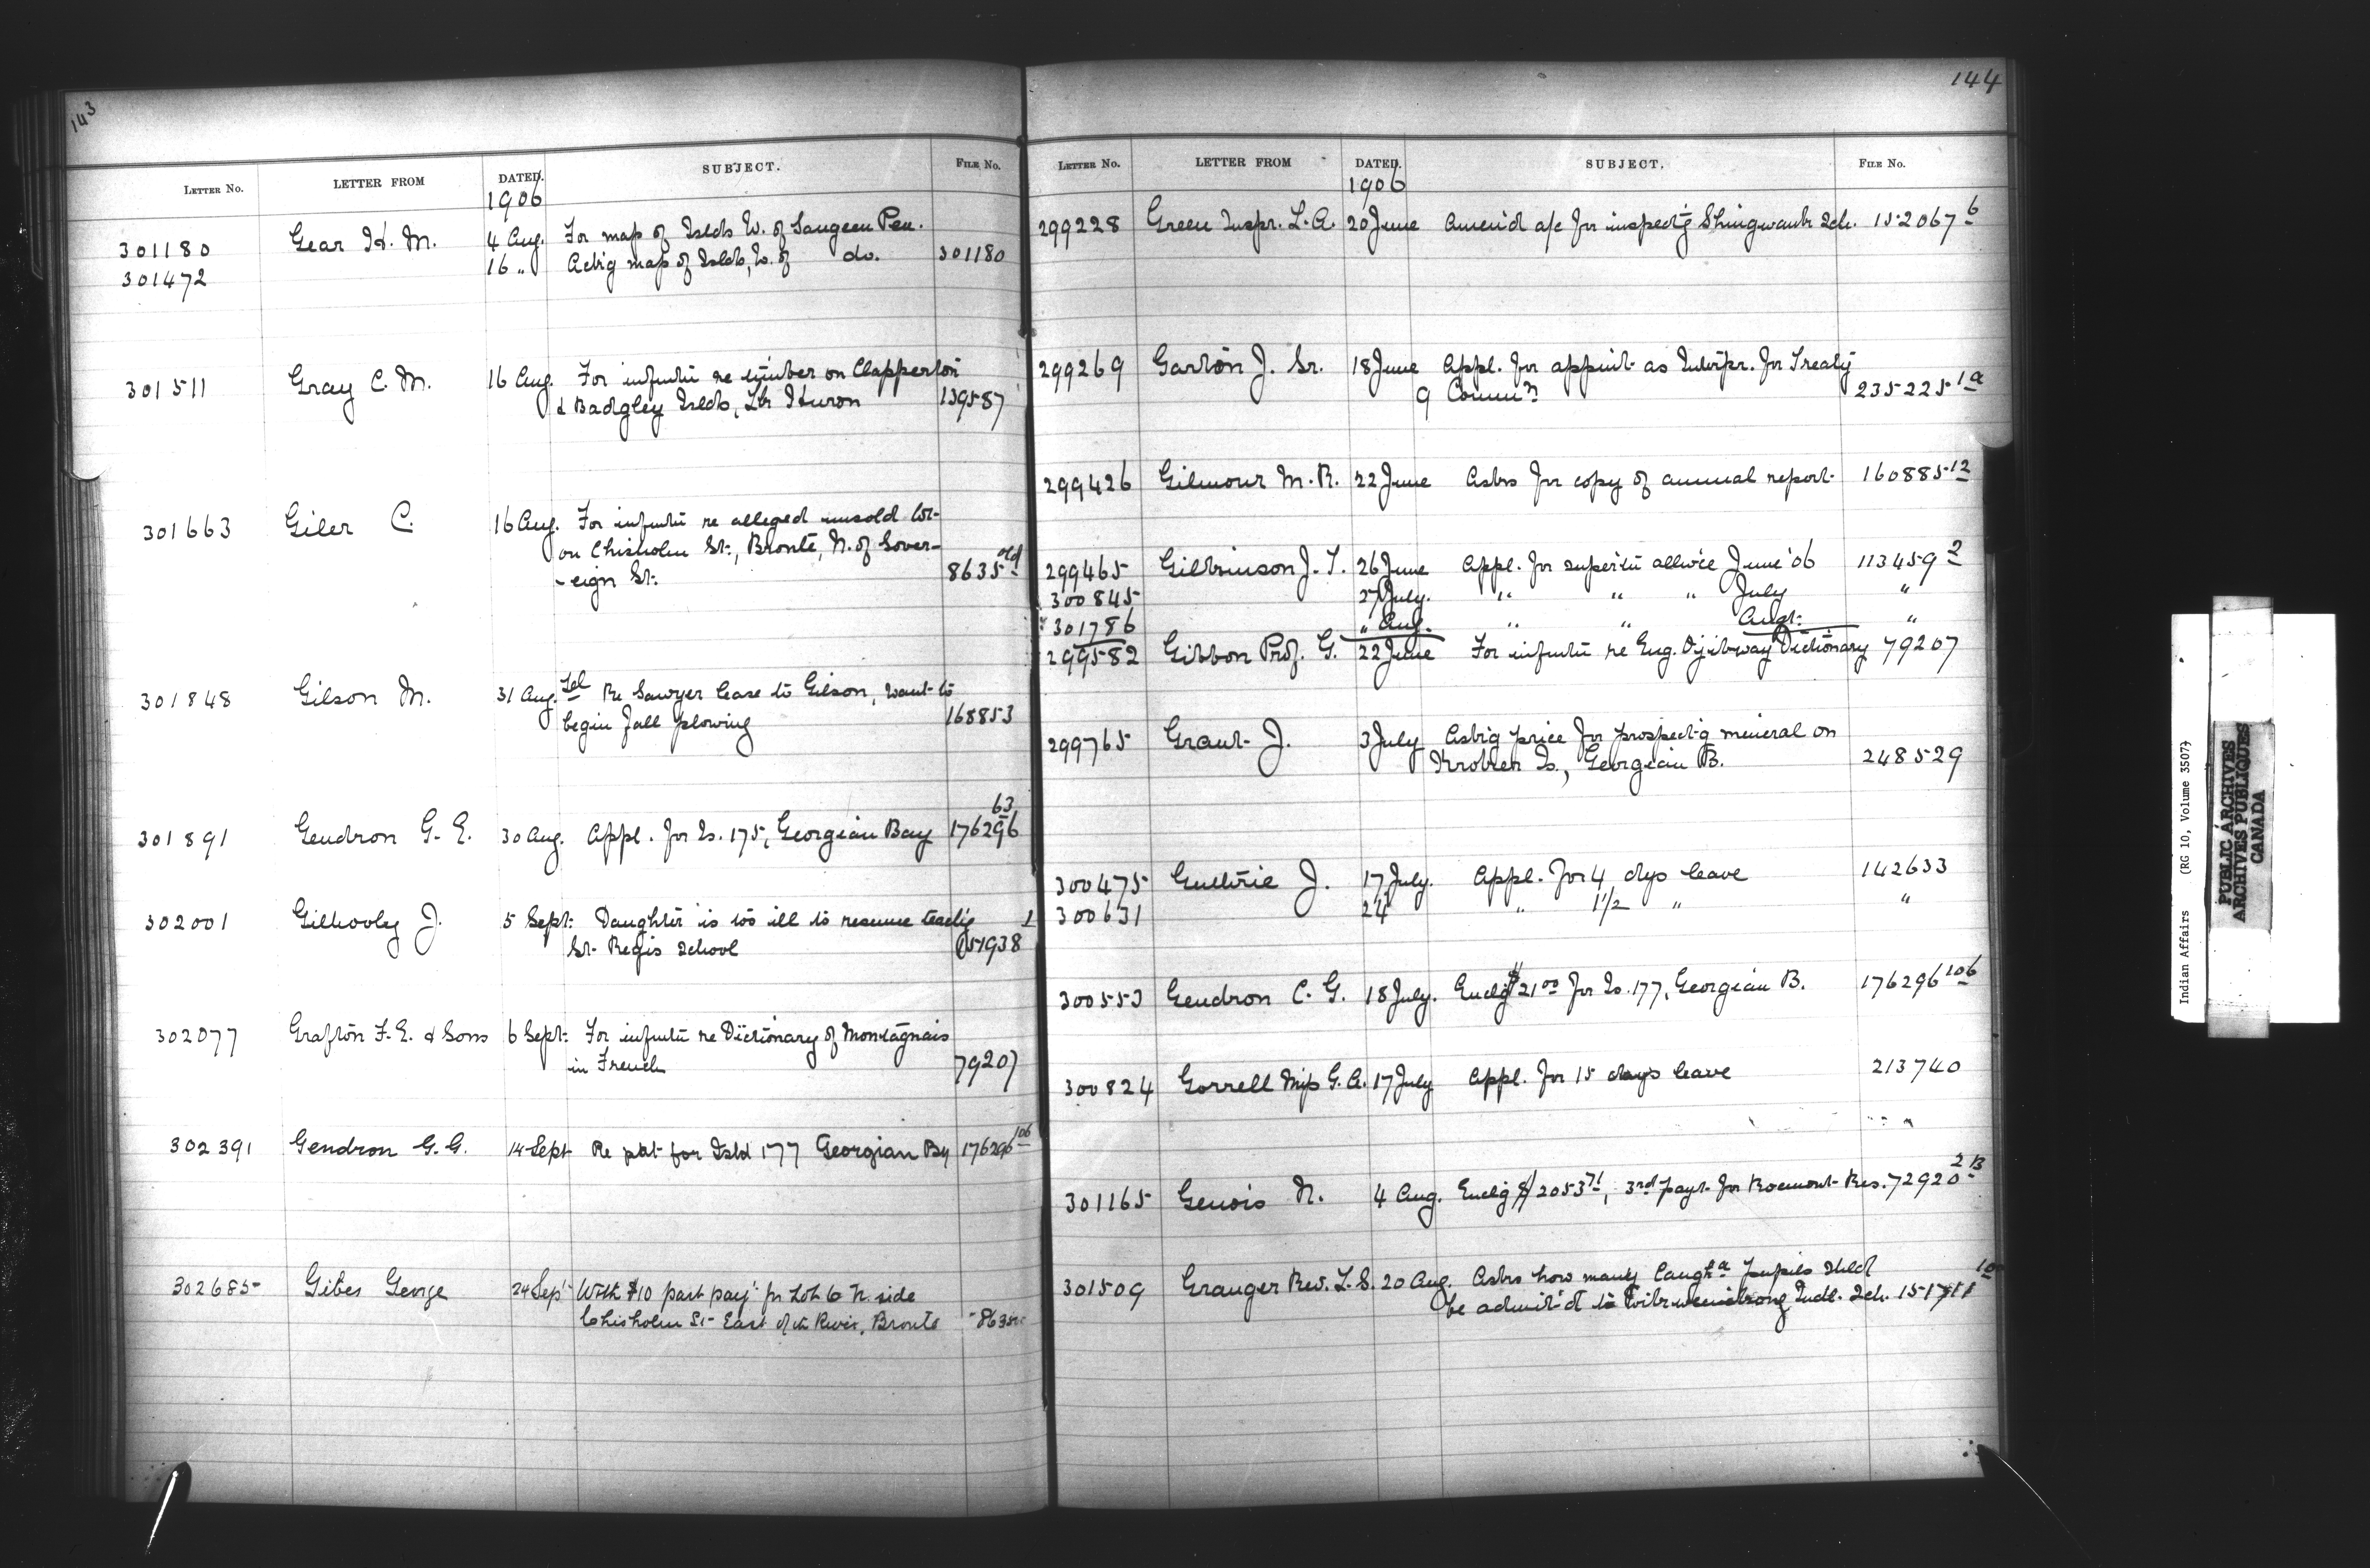 143
LETTER NO. LETTER FROM DATED. SUBJECT. FILE NO.
1906
301180 Gear H. M. 4 Aug. For map of Islds W. of Saugeen Pen.
301472 16 " Ack'g map of Islds, W. of do. 301180
301511 Gray C. M. 16 Aug. For infmtn re timber on Clapperton
& Badgley Islds, Lk Huron 139587
301663 Giler C. 16 Aug. For infmtn re alleged unsold lot
on Chisholm St., Bronte, N. of Sover-
-eign St. 8635 old
301848 Gilson M. 31 Aug. Tel Re Sawyer lease to Gilson, want to
begin fall plowing 168853
301891 Gendron G. E. 30 Aug. Appl. for Is. 175, Georgian Bay 176296 63
302001 Gilhooly J. 5 Sept. Daughter is too ill to resume teach'g
St. Regis School 151938 1
302077 Grafton F. E. & Sons 6 Sept. For infmtn re Dictionary of Montagnais
in French 79207
302391 Gendron G. G. 14 Sept Re pat for Isld 177 Georgian By 176296 106
302685 Gibes George 24 Sep't With $10 part pay't for Lot 6 N. side
Chisholm St East of the River, Bronte 8635
144
LETTER NO. LETTER FROM DATED. SUBJECT. FILE NO.
1906
299228 Green Inspr. L. A. 20 June Amen'd a/c for inspect'g Shingwauk Sch. 152067 6
299269 Garton J. Sr. 18 June Appl. for appmt as Interpr. for Treaty
9 Commn 235225 1a
299426 Gilmour M. R. 22 June Asks for copy of annual report 160885-12
299465 Gilkinson J. T. 26 June Appl. for super'tn allw'ce June '06 113459 2
300845 27 July. " " " July "
301786 " Aug. " " Augt. "
299582 Gibbon Prof. G. 22 June For infmtn re Eng. Ojibway Dictionary 79207
299765 Grant J. 3 July Ask'g price for prospect'g mineral on
Is., Georgian B. 248529
300475 Guthrie J. 17 July. Appl. for 4 dys leave 142633
300631 24 " 1 1/2 " "
300553 Gendron C. G. 18 July. Encl'g $21 00 for Is. 177, Georgian B. 176296 106
300824 Gorrell Miss G. A. 17 July Appl. for 15 days leave 213740
301165 Genois N. 4 Aug. Encl'g $2053 71, 3rd payt for Rocmont Res. 72920 2B
301509 Granger Rev. L. S. 20 Aug. Asks how many Caugh'a pupils shld
be admit'd to Wikwemikong Indl. Sch. 151711 10
Indian Affairs (RG 10, Volume 3507)
PUBLIC ARCHIVES
ARCHIVES PUBLIQUES
CANADA